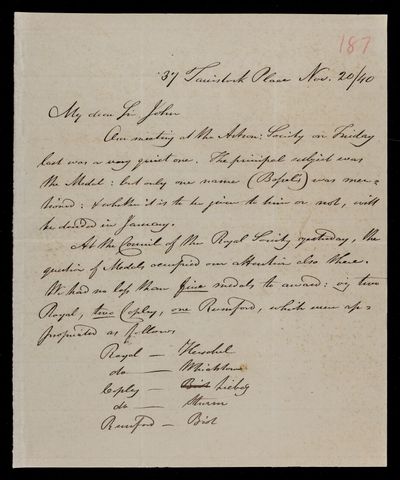 187
37 Tavistock Place Nov. 20/40
My dear Sir John
Our meeting at the Astron: Society on Friday
last was a very quiet one. The principal subject was
the Medal: but only one name (Bessel's) was men=
tioned: & whether it is to be given to him or not, will
be decided in January.
At the Council of the Royal Society yesterday, the
question of Medals occupied our attention also there.
We had no less than five medals to award: viz two
Royal, two Copley, one Rumford, which were ap=
propriated as follows
Royal — Herschel
do — Wheatstone
Copley — Biot Liebig
do — Sturm
Rumford — Biot